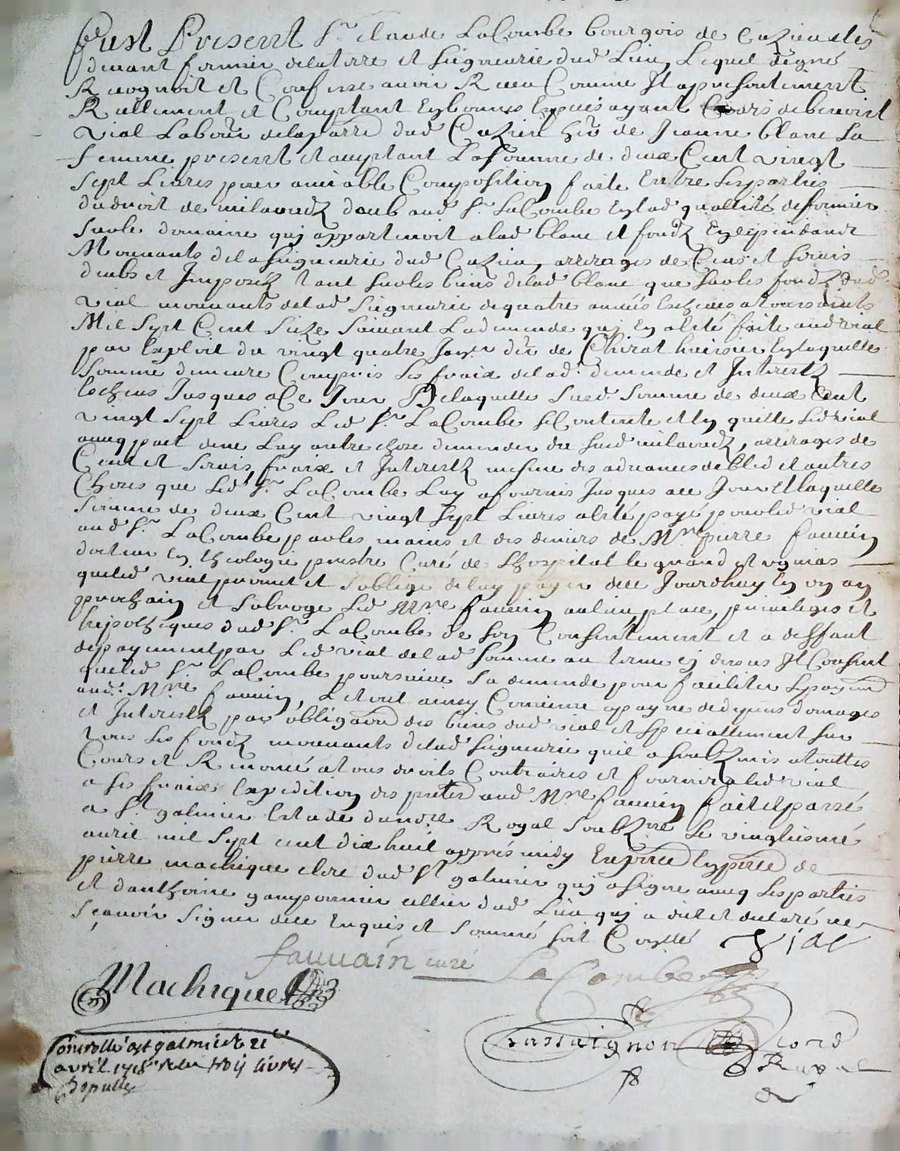 fust Present Sr. claude LaCombe bourgois de Cuzieu cles
devant fermier delaterre et seigneurie dud Lieu Lequel degré
Recognoit et Confesse avoir Receu Comme
Reallement et Comptant En bonnes Especes ayant Cours de benoist
vial Labor. dud Cuzieu de Jeanne blanc Sa
femme present et acceptant La somme de deux Cent vingt
sept Livres pour amiable Composition faite Entre Les parties
du droit de milaods deub aud Sr. LaCombe En lad quallité de fermier
sur le domaine quy appartenoit alad blanc et fondz En dependandz
Mouvants delaseigneurie dud Cuzieu, arrerages de Cens et servis
deubs et Imposez tant sur les biens delad blanc que sur les fondz dud
vial mouvants delad seigneurie de quatre années Escheues
Mil sept Cent seize suivant La demande quy En a esté faite aud vial
par Exploit du vingt quatre de Chirat huissier En laquelle
somme demeure Compris les fraix delad. demande et Interestz
Escheus Jusques a Ce Jour De laquelle susd somme de deux Cent
vingt sept Livres Led Sr. LaCombe se Contente et En quitte Led vial
avec pact de ne Luy autre chose demander du susd milaods, arrerages de
Cens et servis, fraix et Interestz mesme des advances de bled et autres
Choses que Led Sr. LaCombe Luy a fournis Jusques a Ce Jour Et laquelle
somme de deux Cent vingt sept Livres a esté payé pour led vial
aud Sr. LaCombe par les mains et des deniers de Mre pierre fauvin
docteur En theologie prestre Curé de Lhospital le grand
que led vial promet et soblige de luy payer de Ce Jourdhuy En un an
prochain et subroge Led Mre fauvin au lieu, place, privileges et
hipotheques dud Sr. LaCombe de son Consentement et a deffaut
de payement par Led vial delad somme au terme Cy dessus Il Consent
que led Sr. LaCombe poursuive sa demande pour faciliter Le payemt
aud. Mre fauvin, Et tout ainsy Convenu a payne de despens domages
et Interestz par obligaon des biens dud vial et specialement sur
tous les fondz mouvants delad seigneurie quil a soubzmis a touttes
Cours et Renoncé a tous droits Contraires et fournira led vial
a ses fraix Expedition des presentes aud Mre fauvin fait et passé
a St. galmier Estude du nore Royal soubzné Le vingtiesme
avril mil sept cent dix huit apprès midy En presence de
pierre machique clerc dud St galmier quy a signé avecq Les parties
et danthoine ganponnier cellier dud Lieu quy a dit et declaré ne
sçavoir signer de Ce Enquis et sommé soit Con.llé Vial
fauvain curé LaCombe
Machique
Controllé a St galmier le 21e
avril 1718 receu trois livres
Chassaignon nore
Royal